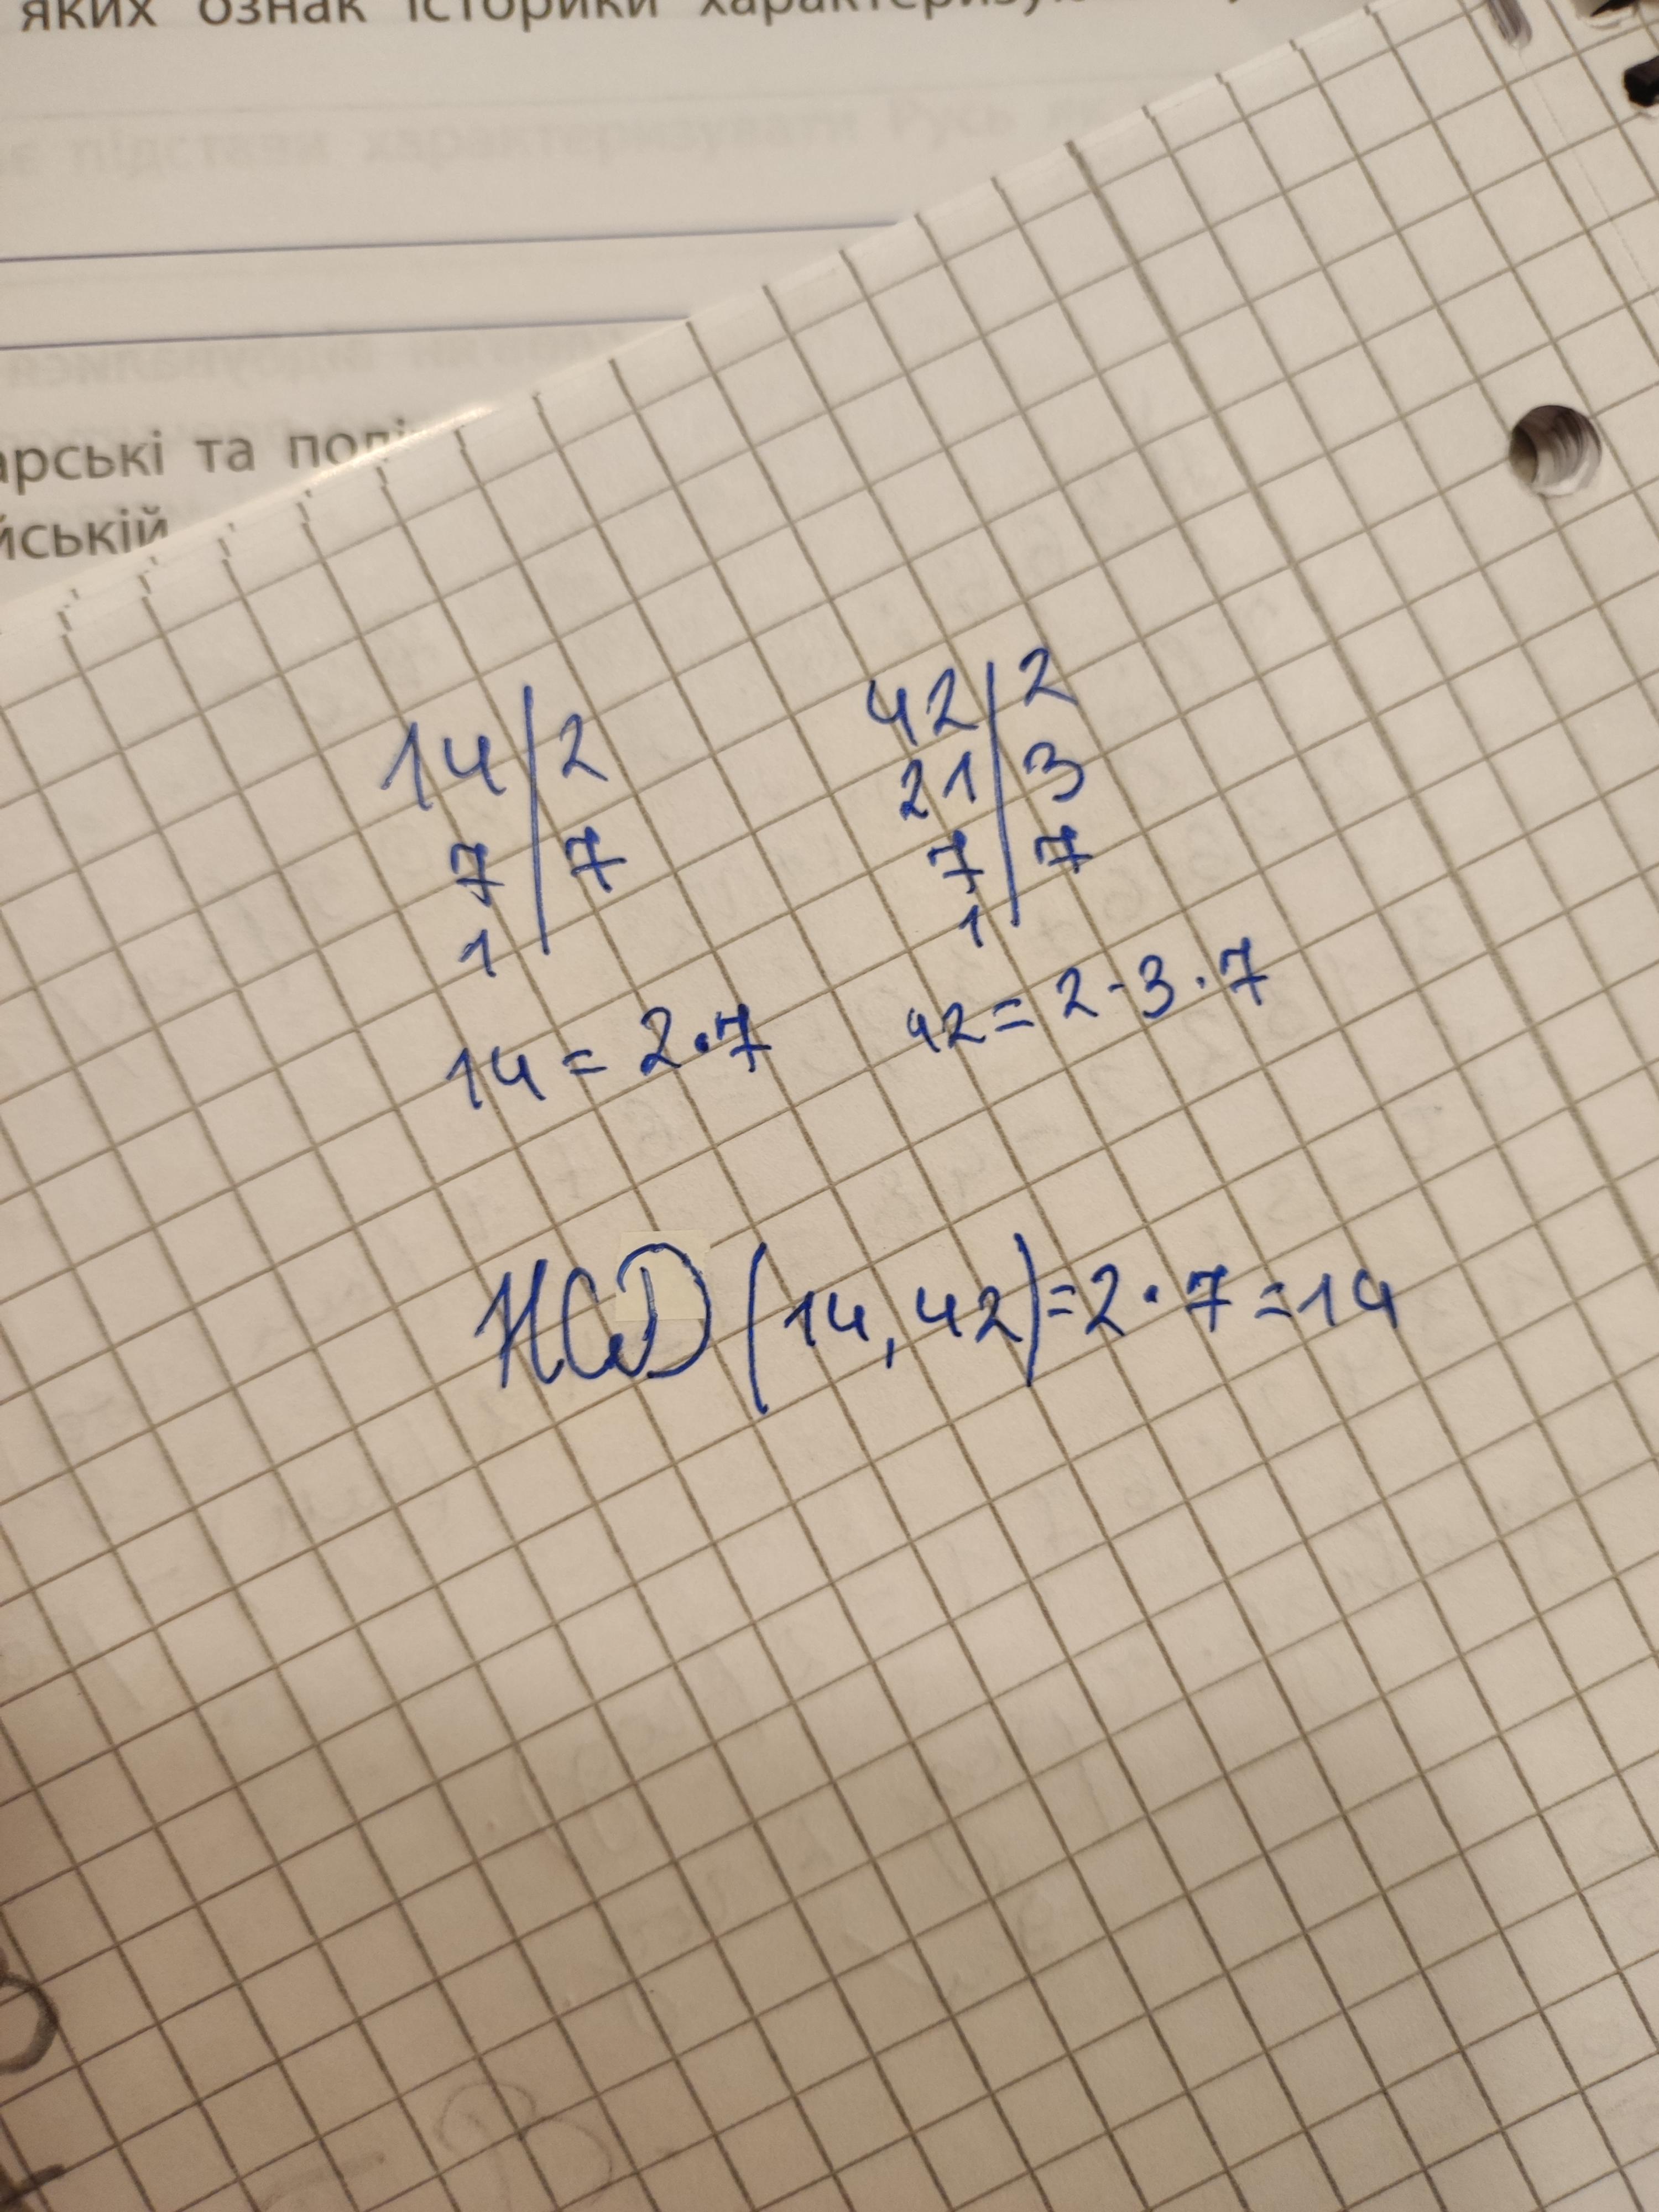 яких ознак історики характеризу
є підстави характеризувати Русь як
арські та полі
йській
14 | 2
7 | 7
1
42 | 2
21 | 3
7 | 7
1
14 = 2·7
42 = 2·3·7
НСD (14, 42) = 2·7 = 14